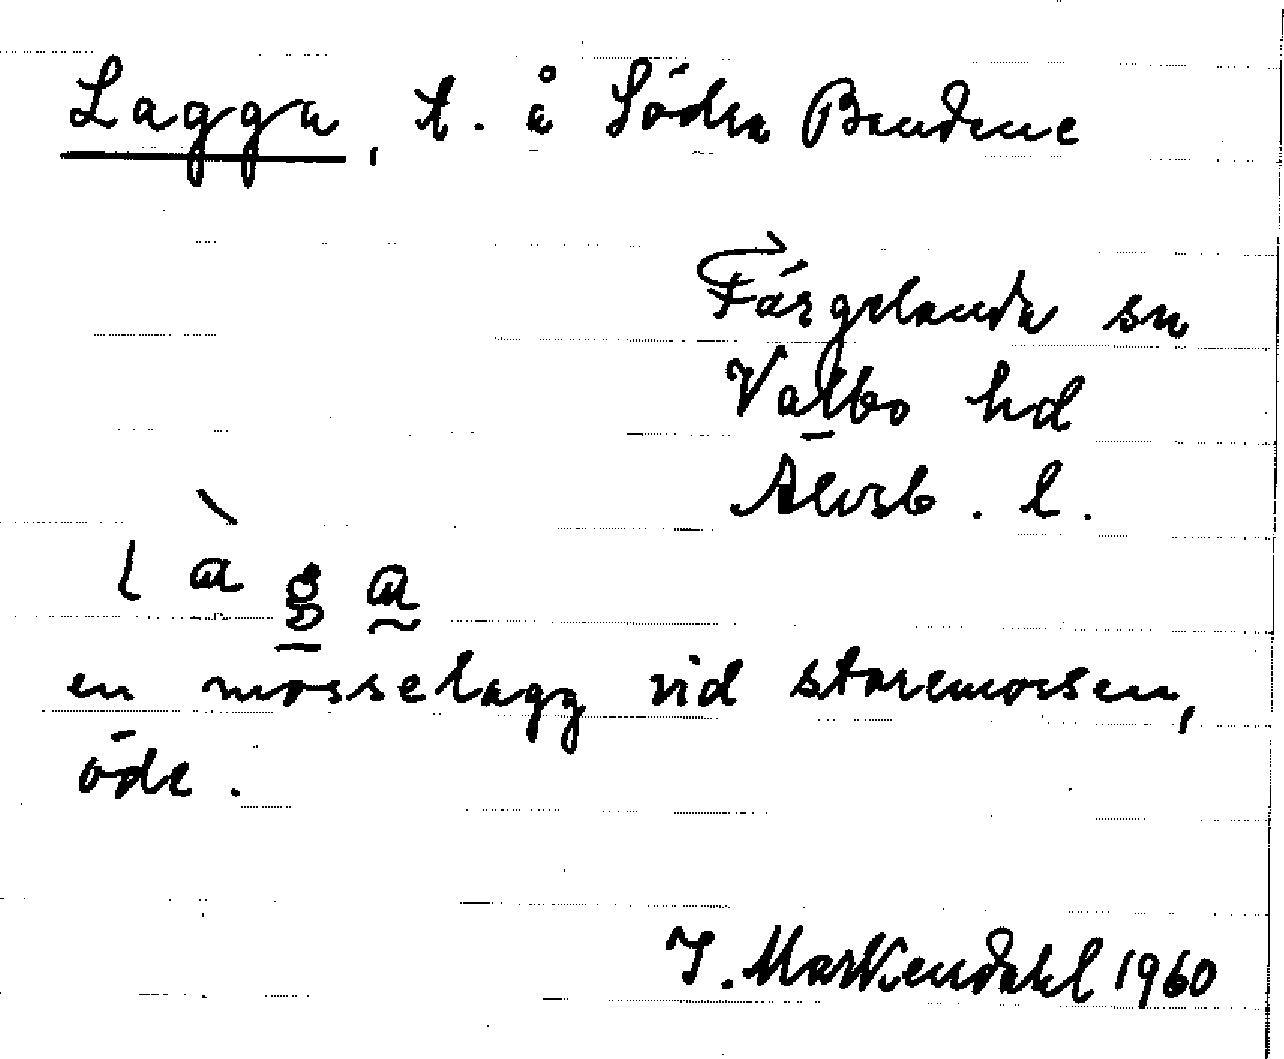 Lagga, t. å Södra Bundene
Färgelanda sn
Valbo hd
Älvsb. l.
làga
en mosselagg vid storemossen,
öde.
I. Markendahl 1960